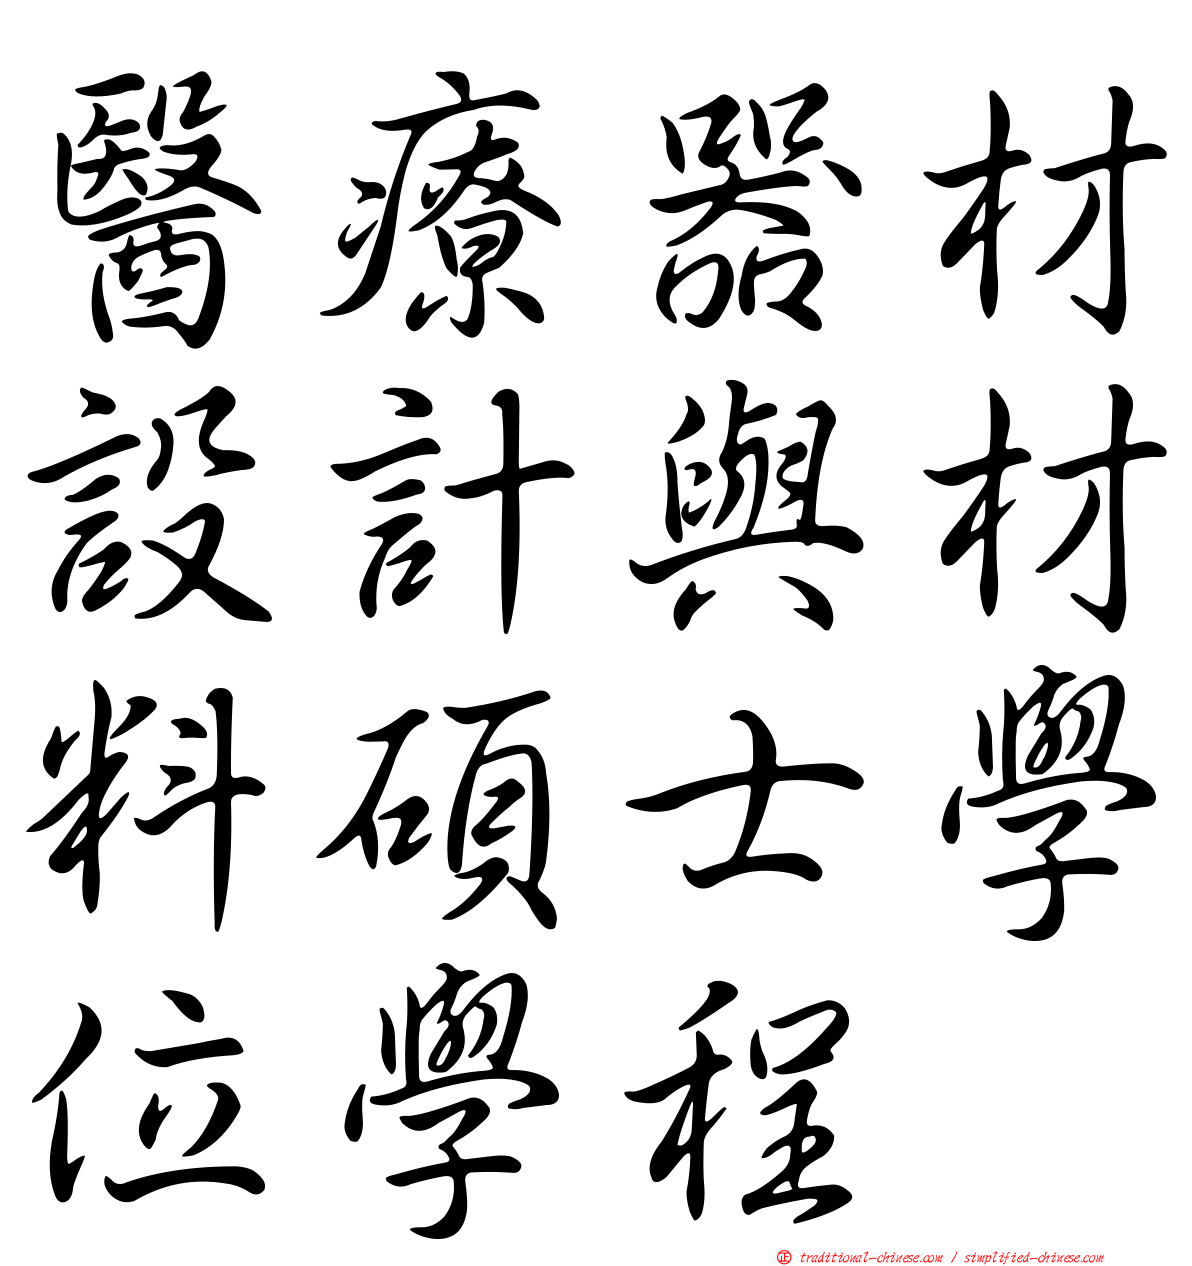 醫療器材
設計與材
料碩士學
位學程
正 traditional-chinese.com / simplified-chinese.com